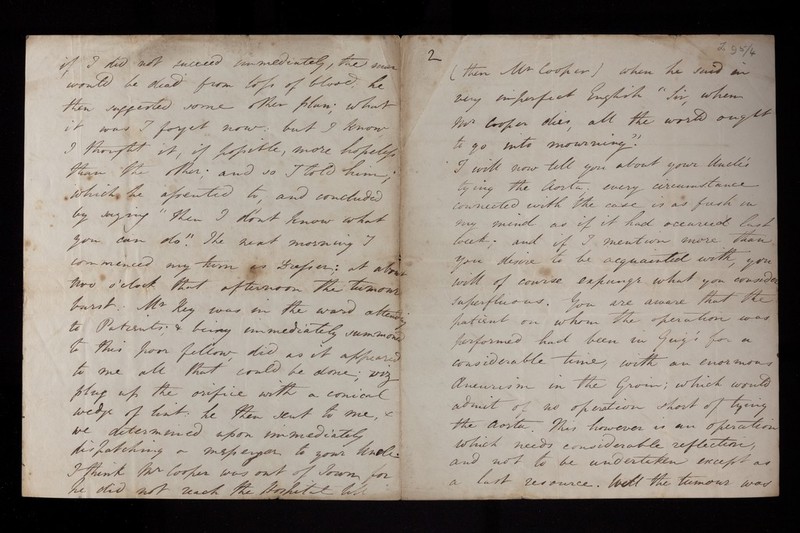 if I did not succeed immediately, the man
would be dead from loss of blood. he
then suggested some other plan; what
it was I forget now: but I know
I thought it, if possible, more hopeless
than the other: and so I told him;
which he assented to, and concluded
by saying "then I dont know what
you can do". The next morning I
commenced my turn as Dresser; at about
two o'clock that afternoon the tumour
burst: Mr Key was in the ward attending
to Patients: & being immediately summoned
to this poor fellow, did as it appeared
to me all that could be done; viz
plug up the orifice with a conical
wedge of lint: he then sent to me, &
we determined upon immediately
dispatching a messenger to your Uncle:
I think Mr Cooper was out of Town for
he did not reach the Hospital till
2
(then Mr Cooper) when he said in
very imperfect English "Sir, when
Mr Cooper dies, all the world ought
to go into mourning."
I will now tell you about your Uncle's
tying the Aorta: every circumstance
connected with the case is as fresh in
my mind as if it had occurred last
week: and if I mention more than
you desire to be acquainted with, you
will of course expunge what you consider
superfluous. You are aware that the
patient on whom the operation was
performed had been in Guy's for a
considerable time, with an enormous
Aneurism in the Groin; which would
admit of no operation short of tying
the Aorta. This however is an operation
which needs considerable reflection,
and not to be undertaken except as
a last resource. Well the tumour was